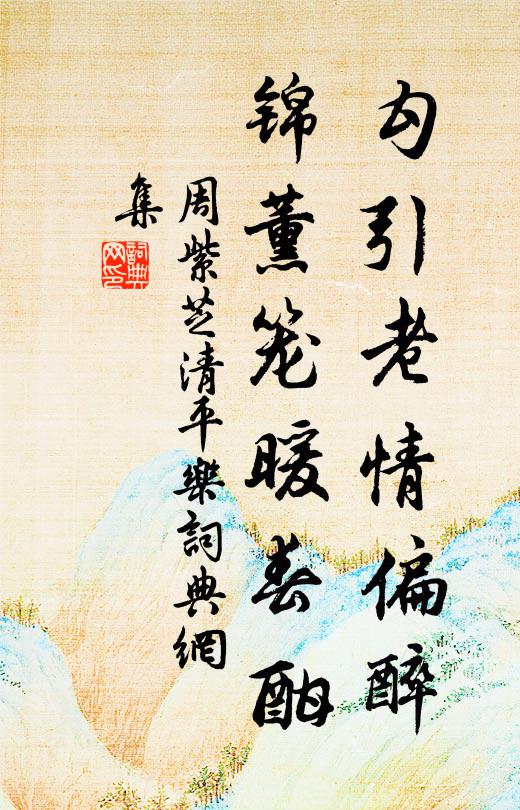 勾引老情偏醉
锦薰笼暖春酣
周紫芝清平樂詞典網
集
詞典
网印